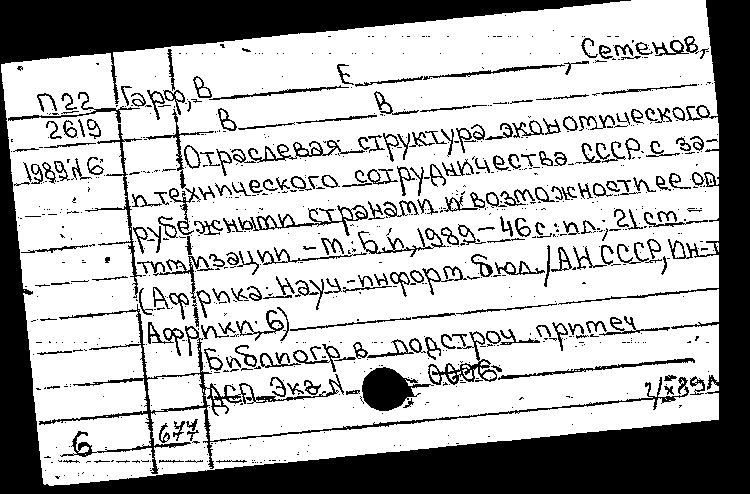 П22 Гарф, В Е , Семенов,
2619 В В
1989 N 6 Отраслевая структура экономического
и технического сотрудничества СССР с за-
рубежными странами и возможности ее оп-
тимизации. - М.: Б.и., 1989. - 46 с.: ил.; 21 см. -
(Африка: Науч.-информ. бюл. / АН СССР, Ин-т
Африки; 6)
Библиогр в подстроч примеч
ДСП Экз N 0006
6 677